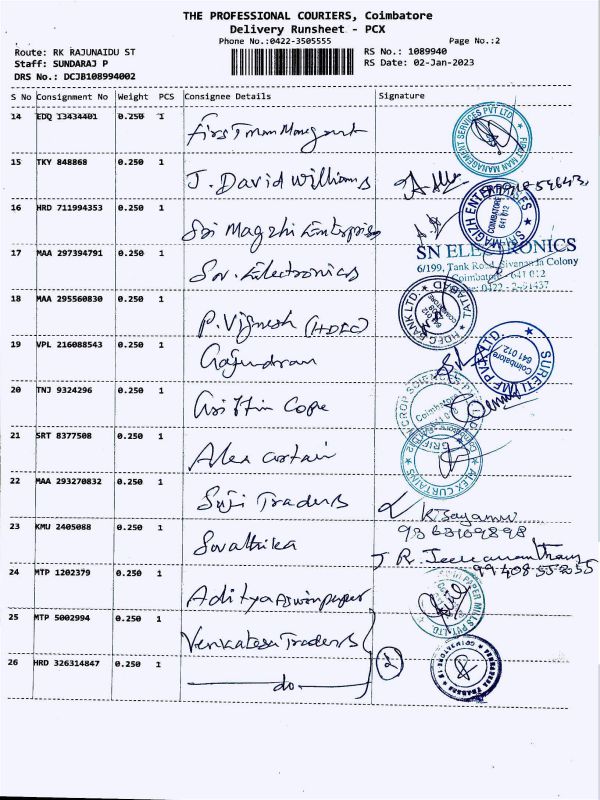 THE PROFESSIONAL COURIERS, Coimbatore
Delivery Runsheet - PCX
Phone No.:0422-3505555 Page No.:2
Route: RK RAJUNAIDU ST RS No.: 1089940
Staff: SUNDARAJ P RS Date: 02-Jan-2023
DRS No.: DCJB108994002
S No Consignment No Weight PCS Consignee Details Signature
14 EDQ 13434401 0.250 1 First man Managent
FIRST MAN MANAGEMENT SERVICES PVT LTD
15 TKY 848868 0.250 1 J. David Williams
16 HRD 711994353 0.250 1 Sri Magizhi Enterprises
SRI MAGIZH ENTERPRISES COIMBATORE 641 012
17 MAA 297394791 0.250 1 Sn. Electronics
SN ELECTRONICS
6/199, Tank Road, Sivananda Colony
Coimbatore - 641 012
18 MAA 295560830 0.250 1 P. Vignesh (HDFC)
BANK LTD.
19 VPL 216088543 0.250 1 Gajendran
SURETI IMF PVT. LTD. Coimbatore 641 012.
20 TNJ 9324296 0.250 1 Crop
CROP SCIENCES Coimbatore
21 SRT 8377508 0.250 1 Alex curtain
ALEX CURTAINS
22 MAA 293270832 0.250 1 Suji Traders
9363109898
23 KMU 2405088 0.250 1 Swathika
J R.
24 MTP 1202379 0.250 1 Aditya Aswinpaper
PAPER MILLS PVT. LTD.
25 MTP 5002994 0.250 1 Venkatesa Traders
26 HRD 326314847 0.250 1 do
2